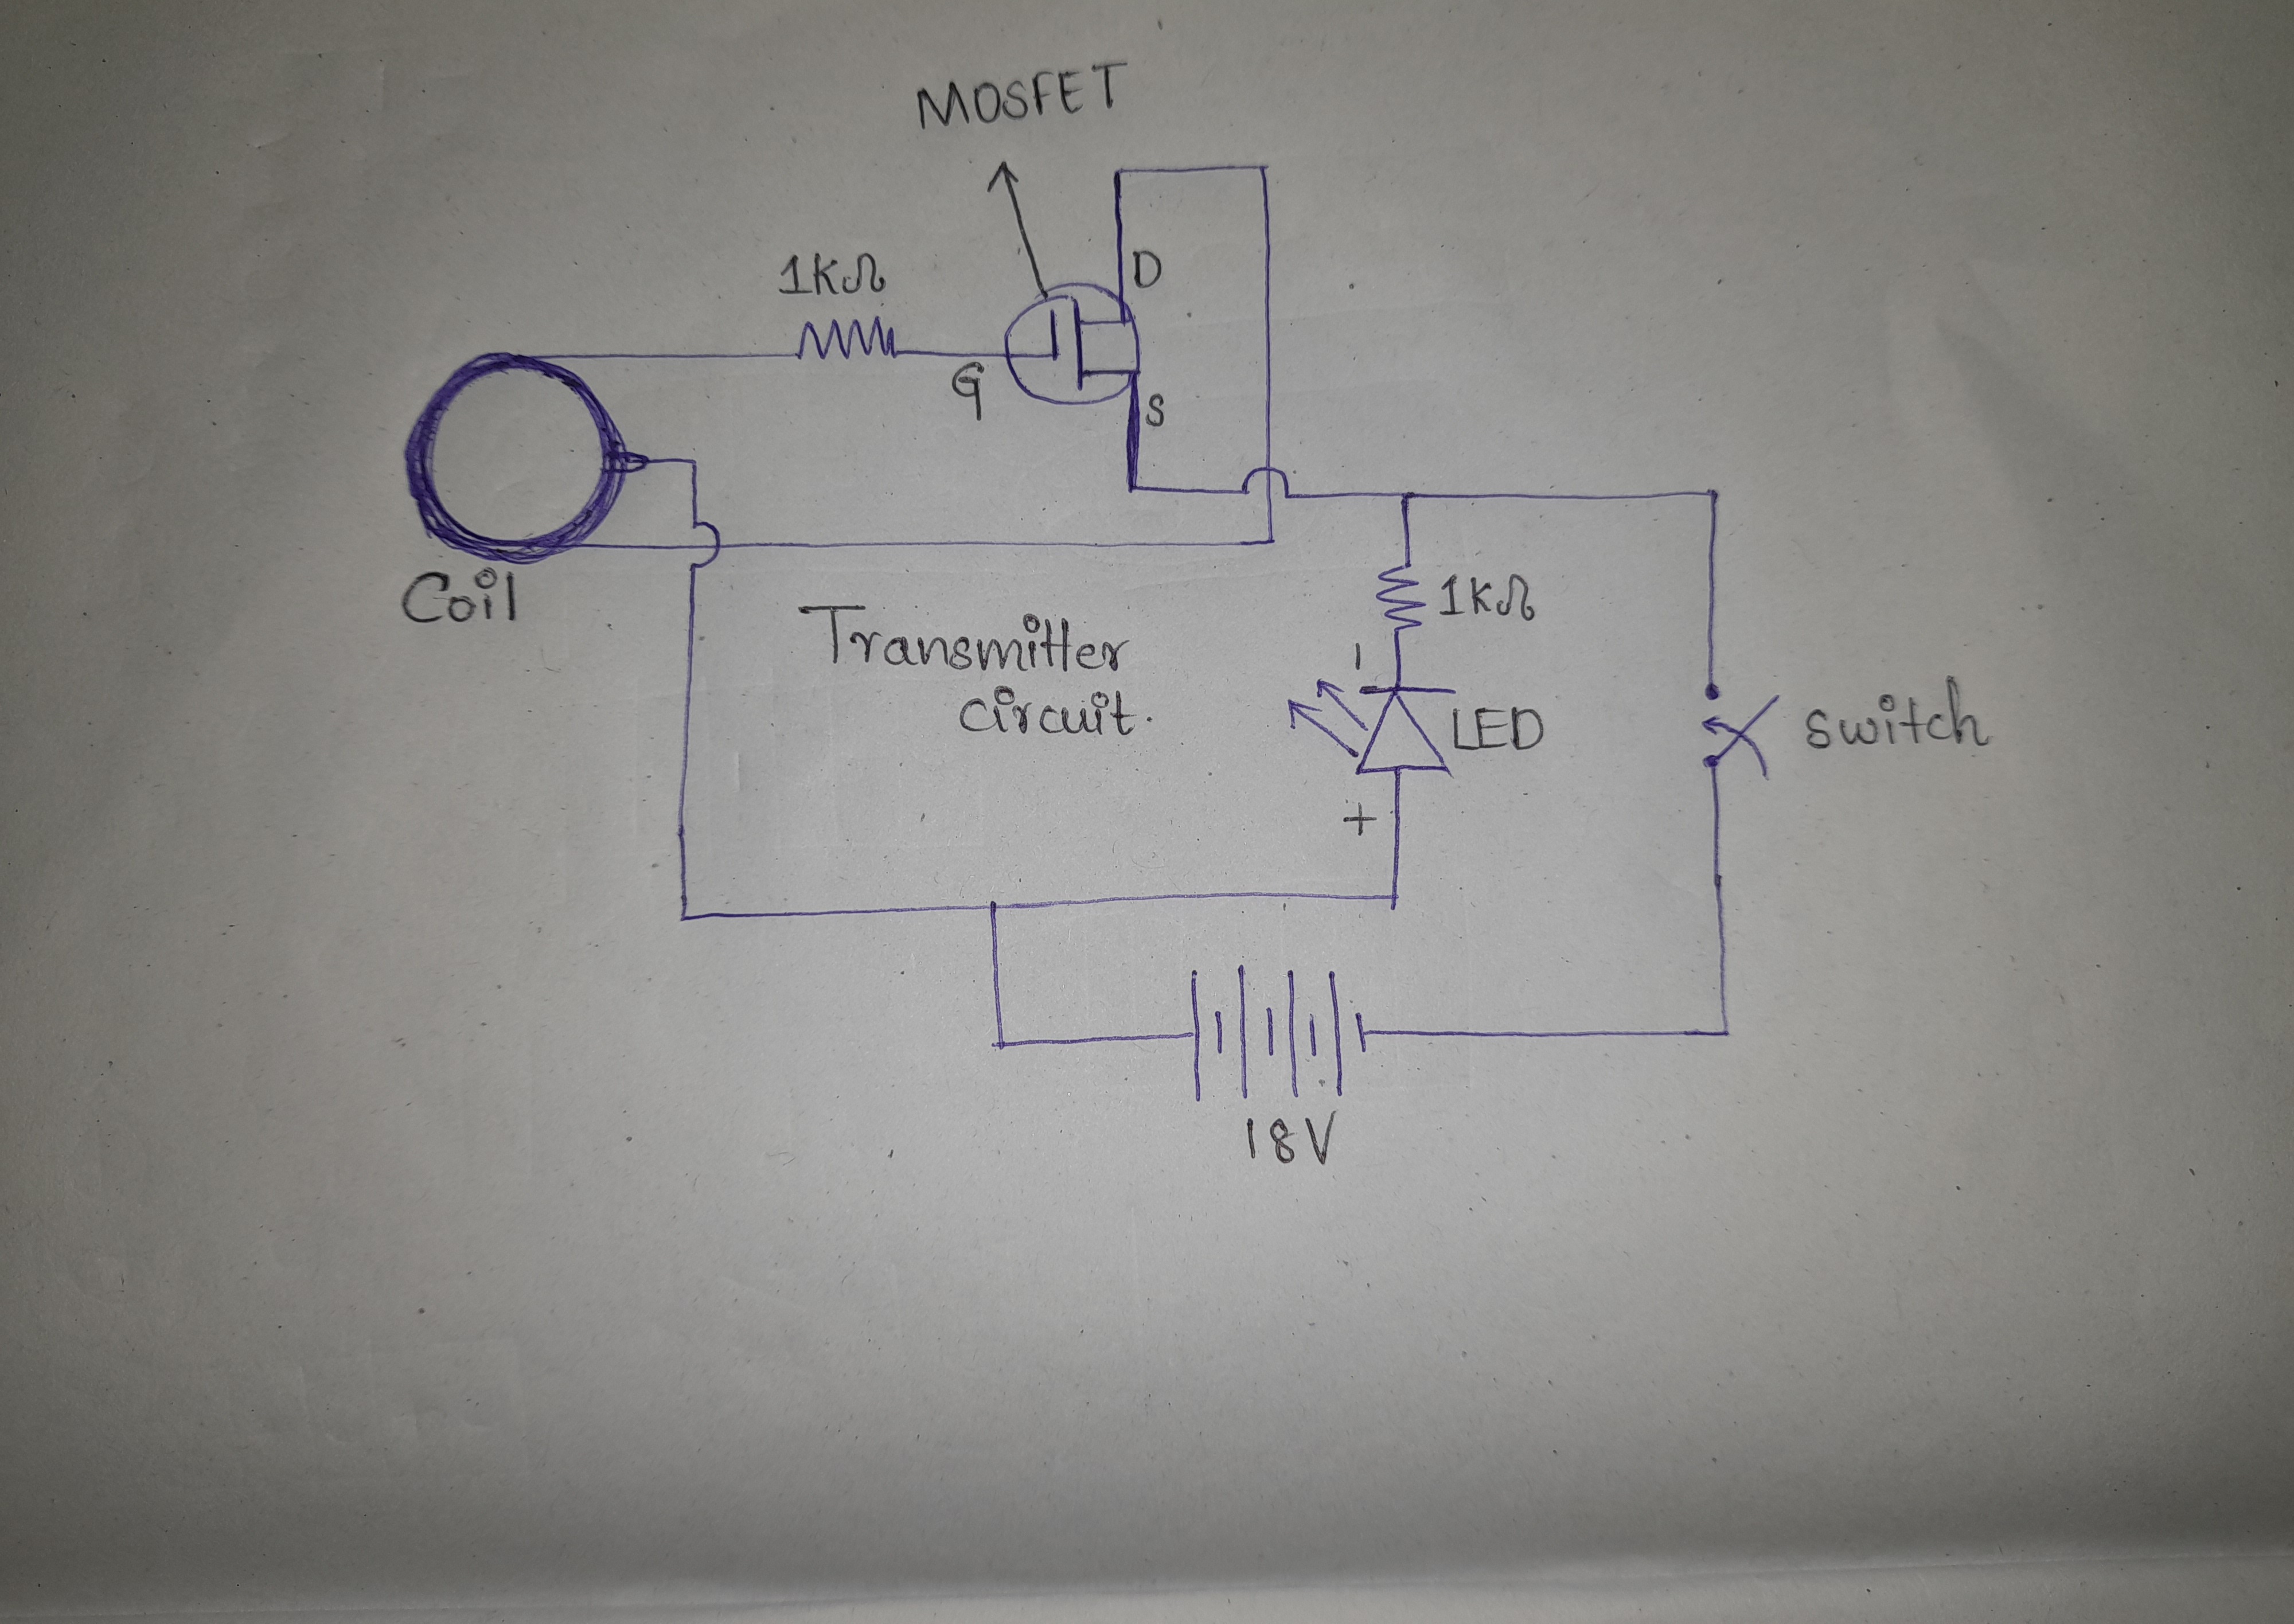 MOSFET
D
1KΩ
G
S
Coil
1KΩ
Transmitter
circuit.
-
LED
switch
+
18V